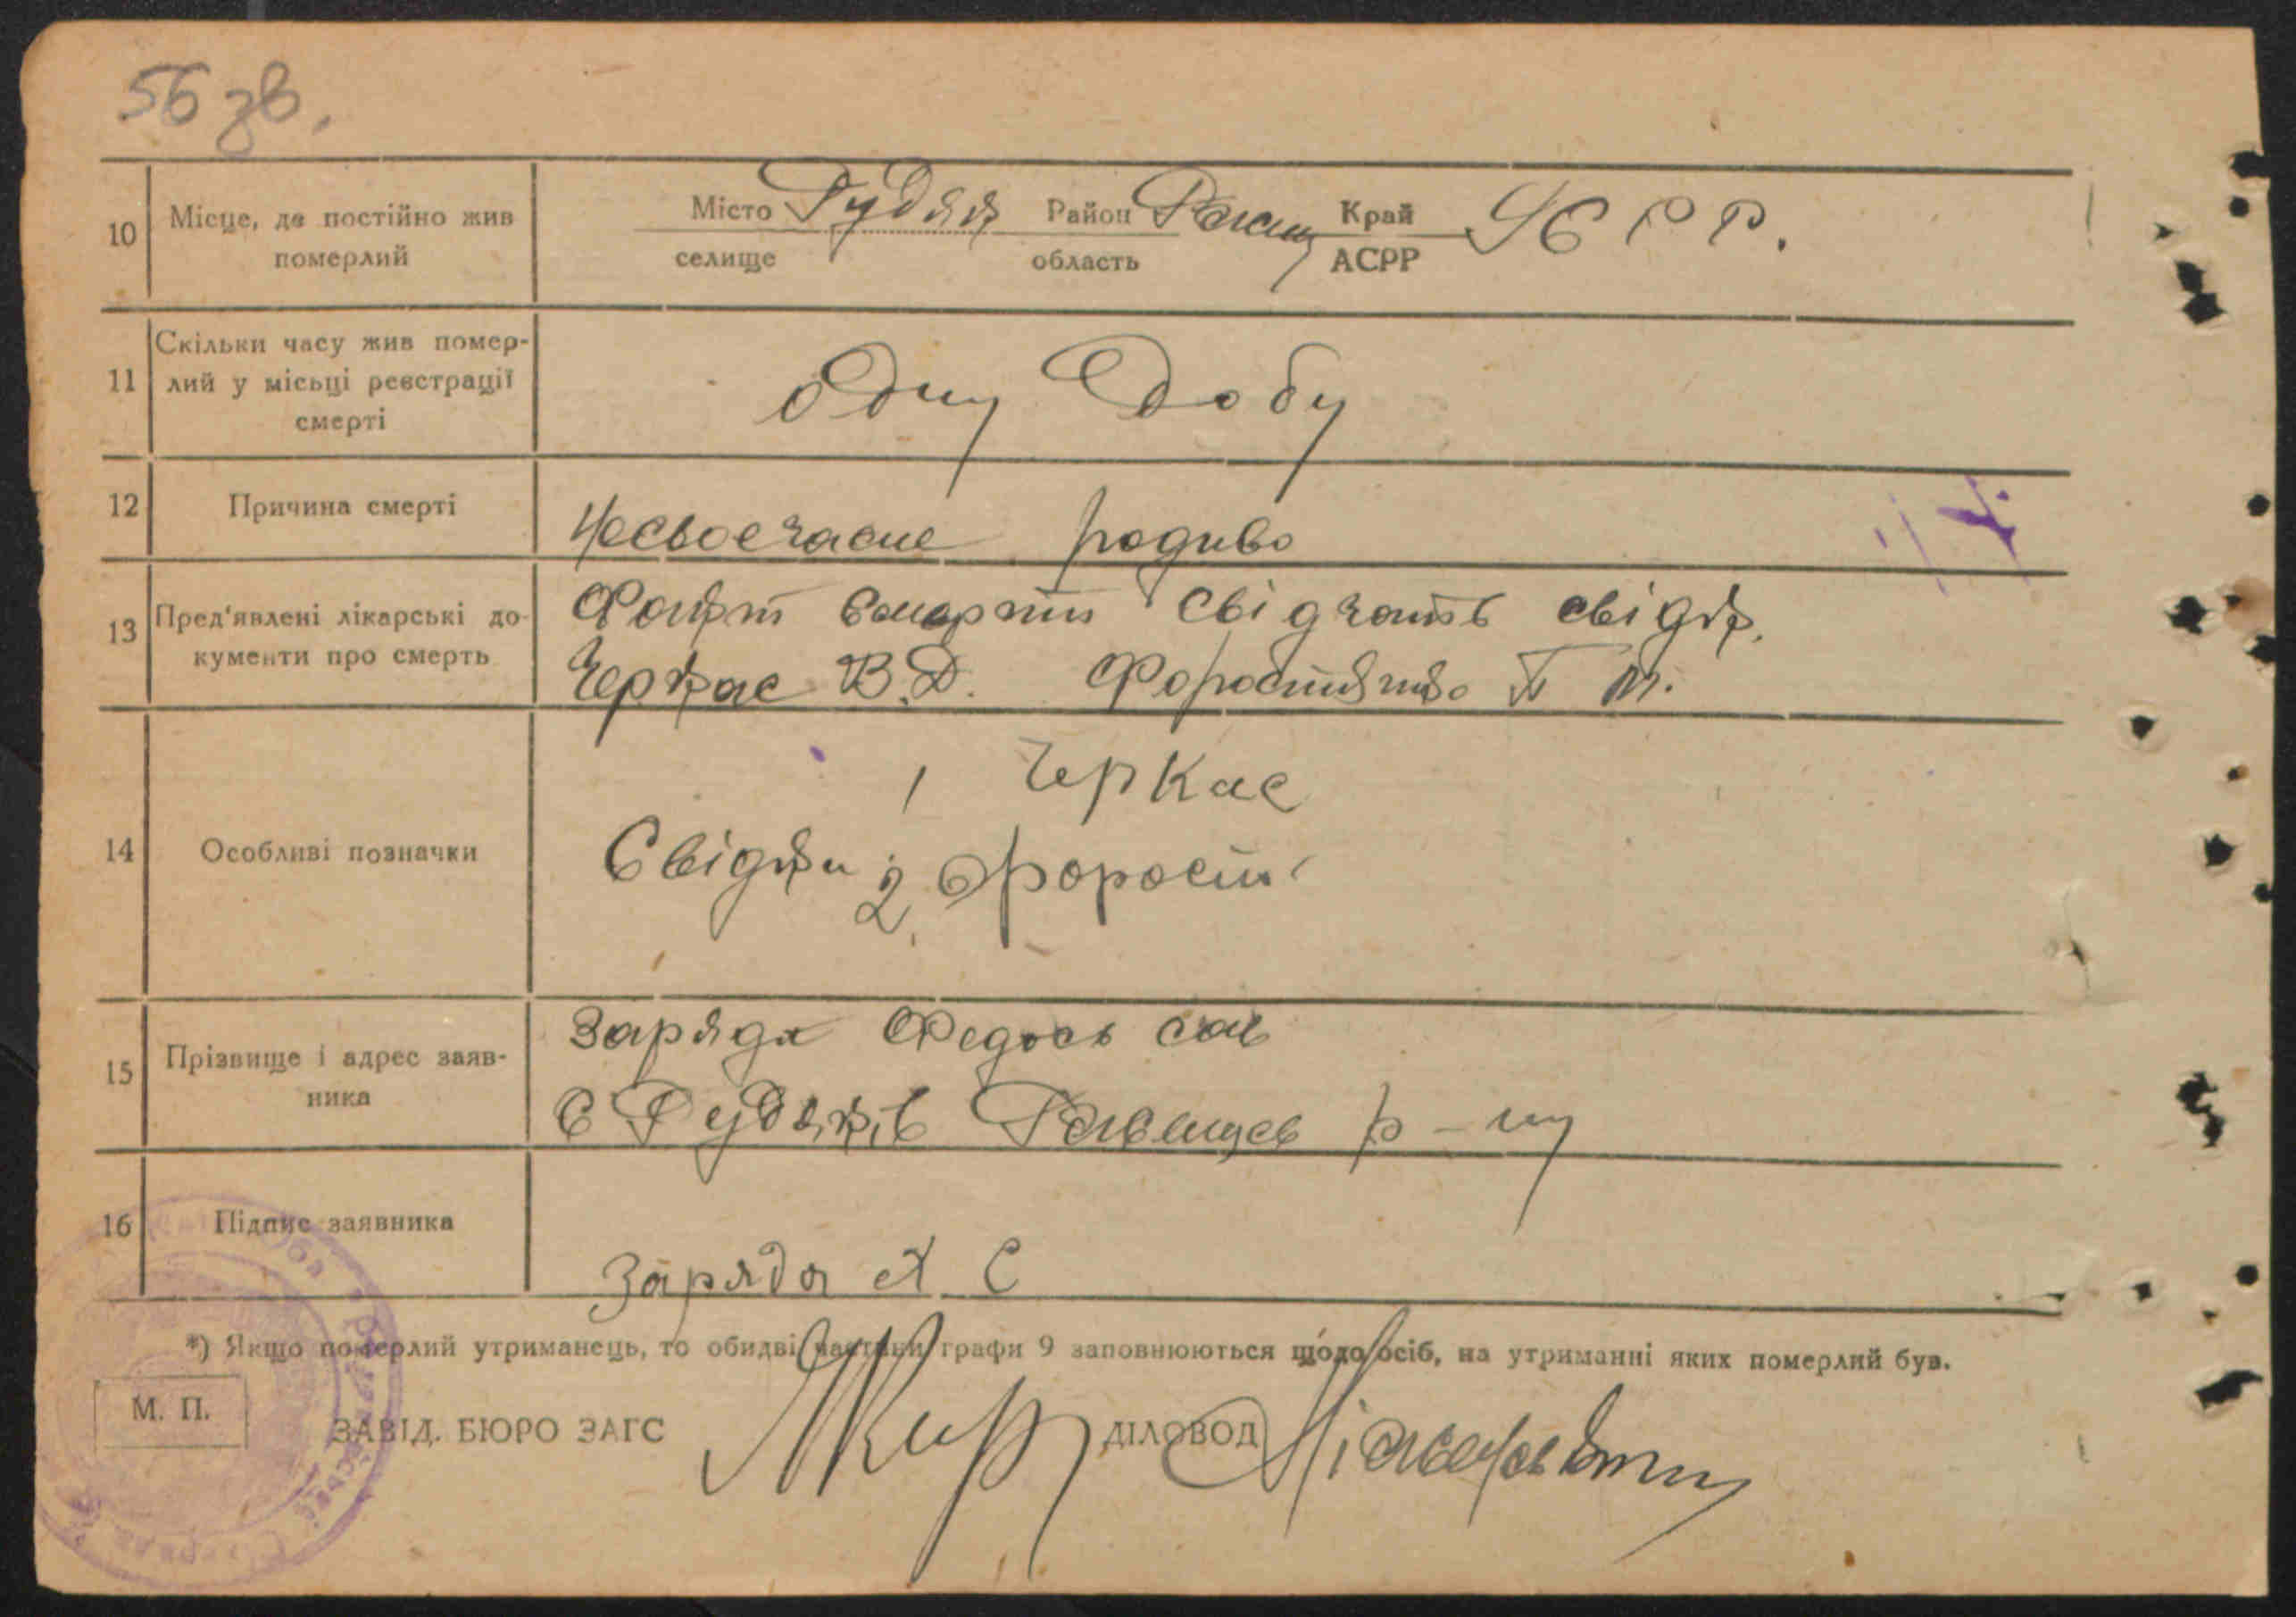 56 зв.
10 Місце, де постійно жив померлий
Місто Рудяк Район Край УСРР.
селище область АСРР
11 Скільки часу жив помер-
лий у місьці реєстрації
смерті
одну добу
12 Причина смерті
Несвоечасне родиво
13 Пред'явлені лікарські до-
кументи про смерть
Факт смерти свідчать свідк.
Черкас В.Д. П М.
14 Особливі позначки
1 Черкас
Свідки: 2 Форост
15 Прізвище і адрес заяв-
ника
Заряда Федось сав
с Рудяків р-ну
16 Підпис заявника
Заряда С
*) Якщо померлий утриманець, то обидві частини графи 9 заповнюються щодо осіб, на утриманні яких померлий був.
М. П.
ЗАВІД. БЮРО ЗАГС ДІЛОВОД